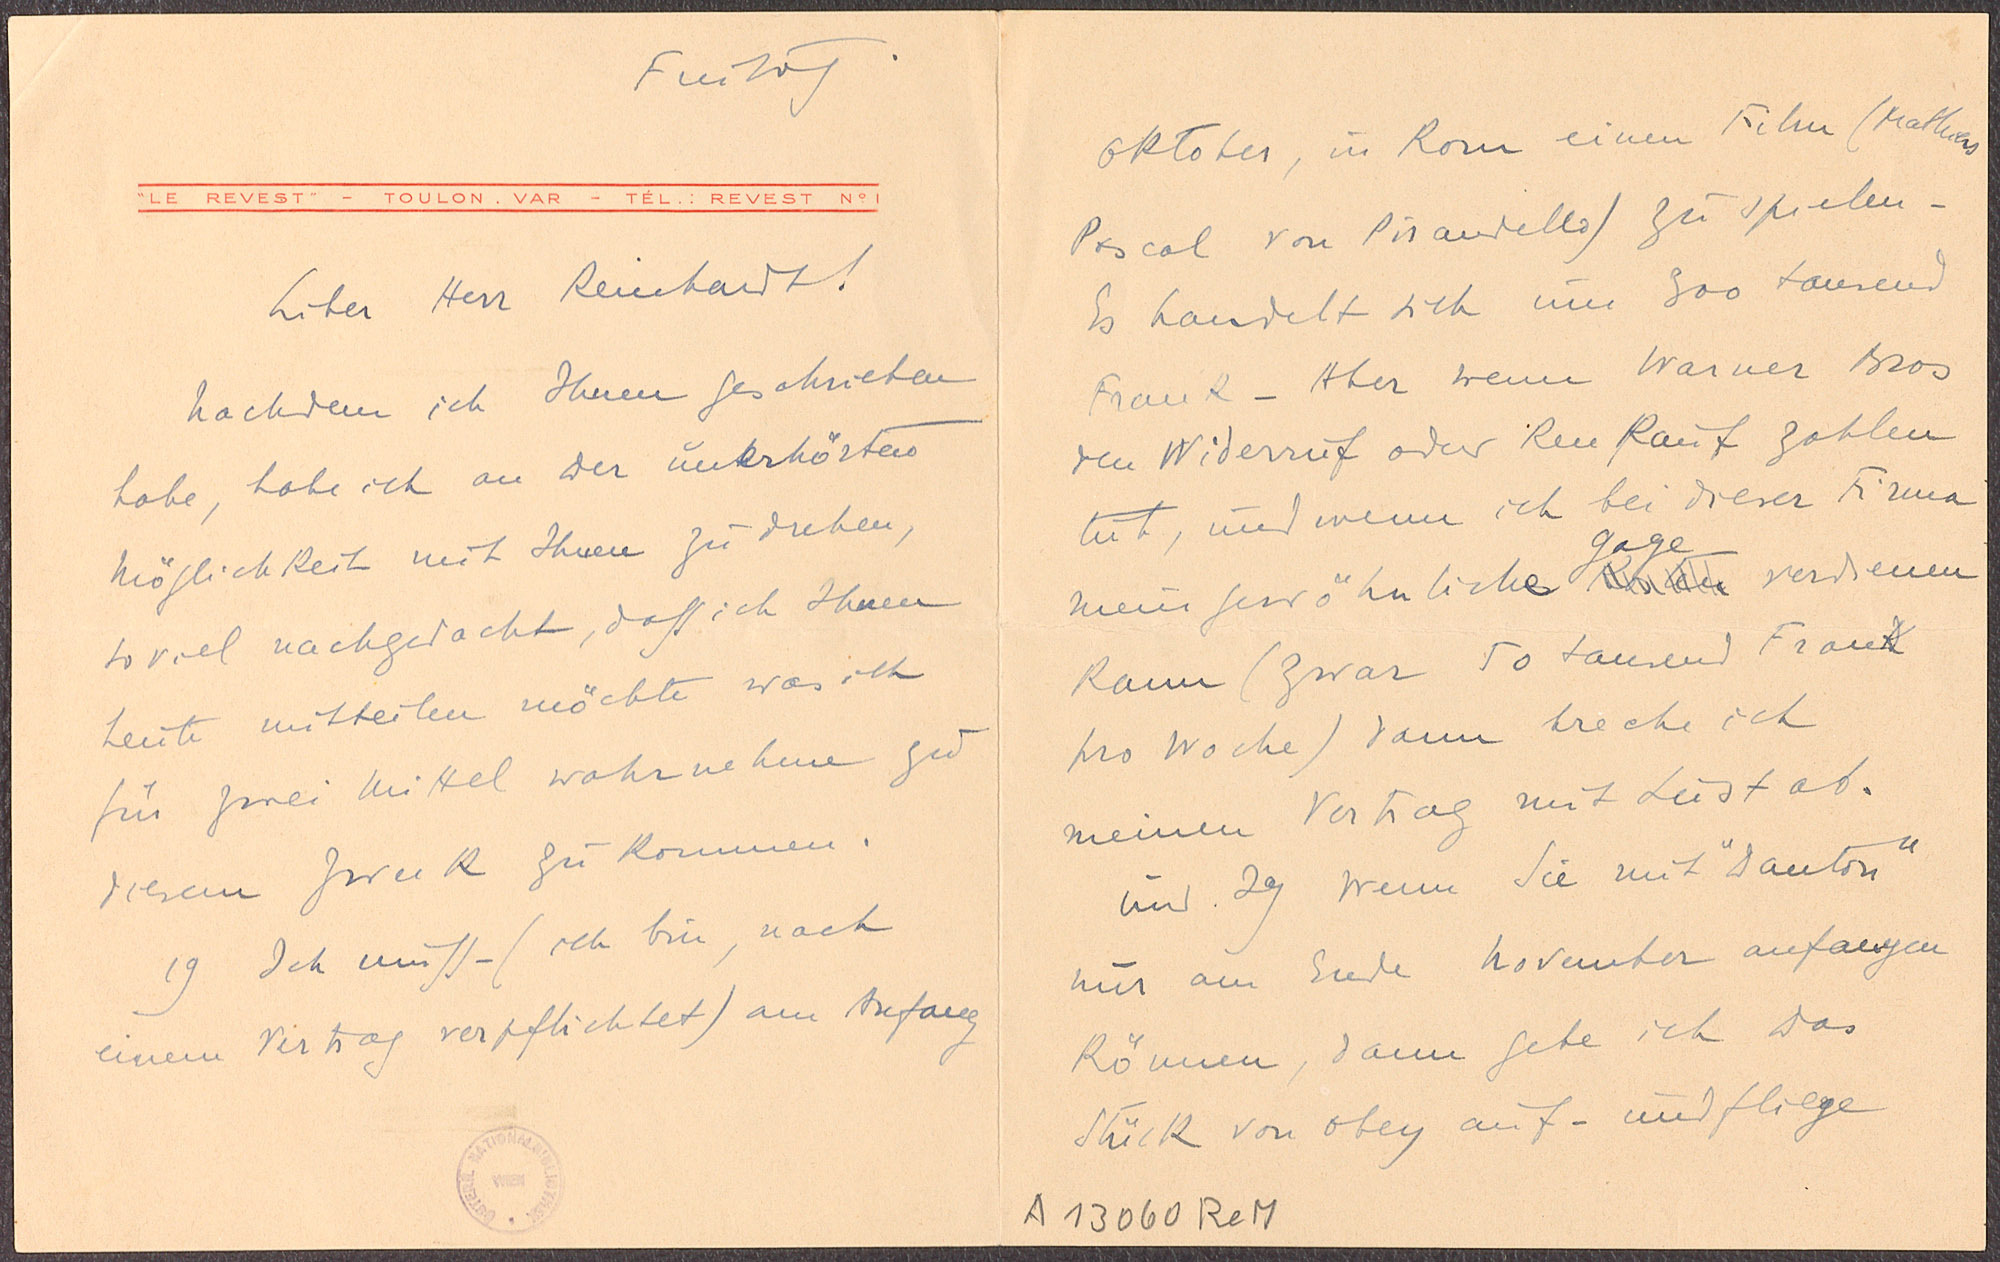 Freitag.
"LE REVEST" - TOULON. VAR - TÉL.: REVEST Nº 1
Lieber Herr Reinhardt!
Nachdem ich Ihnen geschrieben
habe, habe ich an der unerhörten
Möglichkeit mit Ihnen zu drehen,
so viel nachgedacht, dass ich Ihnen
heute mitteilen möchte was ich
für zwei Mittel wahrnehme zu
diesem Zweck zu kommen.
1) Ich muss - (ich bin, nach
einem Vertrag verpflichtet) am Anfang
ÖSTERR. NATIONALBIBLIOTHEK WIEN
Oktober, in Rom einen Film (Mathias
Pascal von Pirandello) zu spielen -
Es handelt sich um 300 tausend
Frank - Aber wenn Warner Bros
den Widerruf oder Renkauf zahlen
tut, und wenn ich bei dieser Firma
mein gewöhnliche Gage verdienen
kann (zwar 50 tausend Frank
pro Woche) dann breche ich
meinen Vertrag mit Lust ab.
und 2) wenn Sie mit "Danton"
nur am Ende November anfangen
können, dann gebe ich das
Stück von Obey auf - und fliege
A 13060 ReM